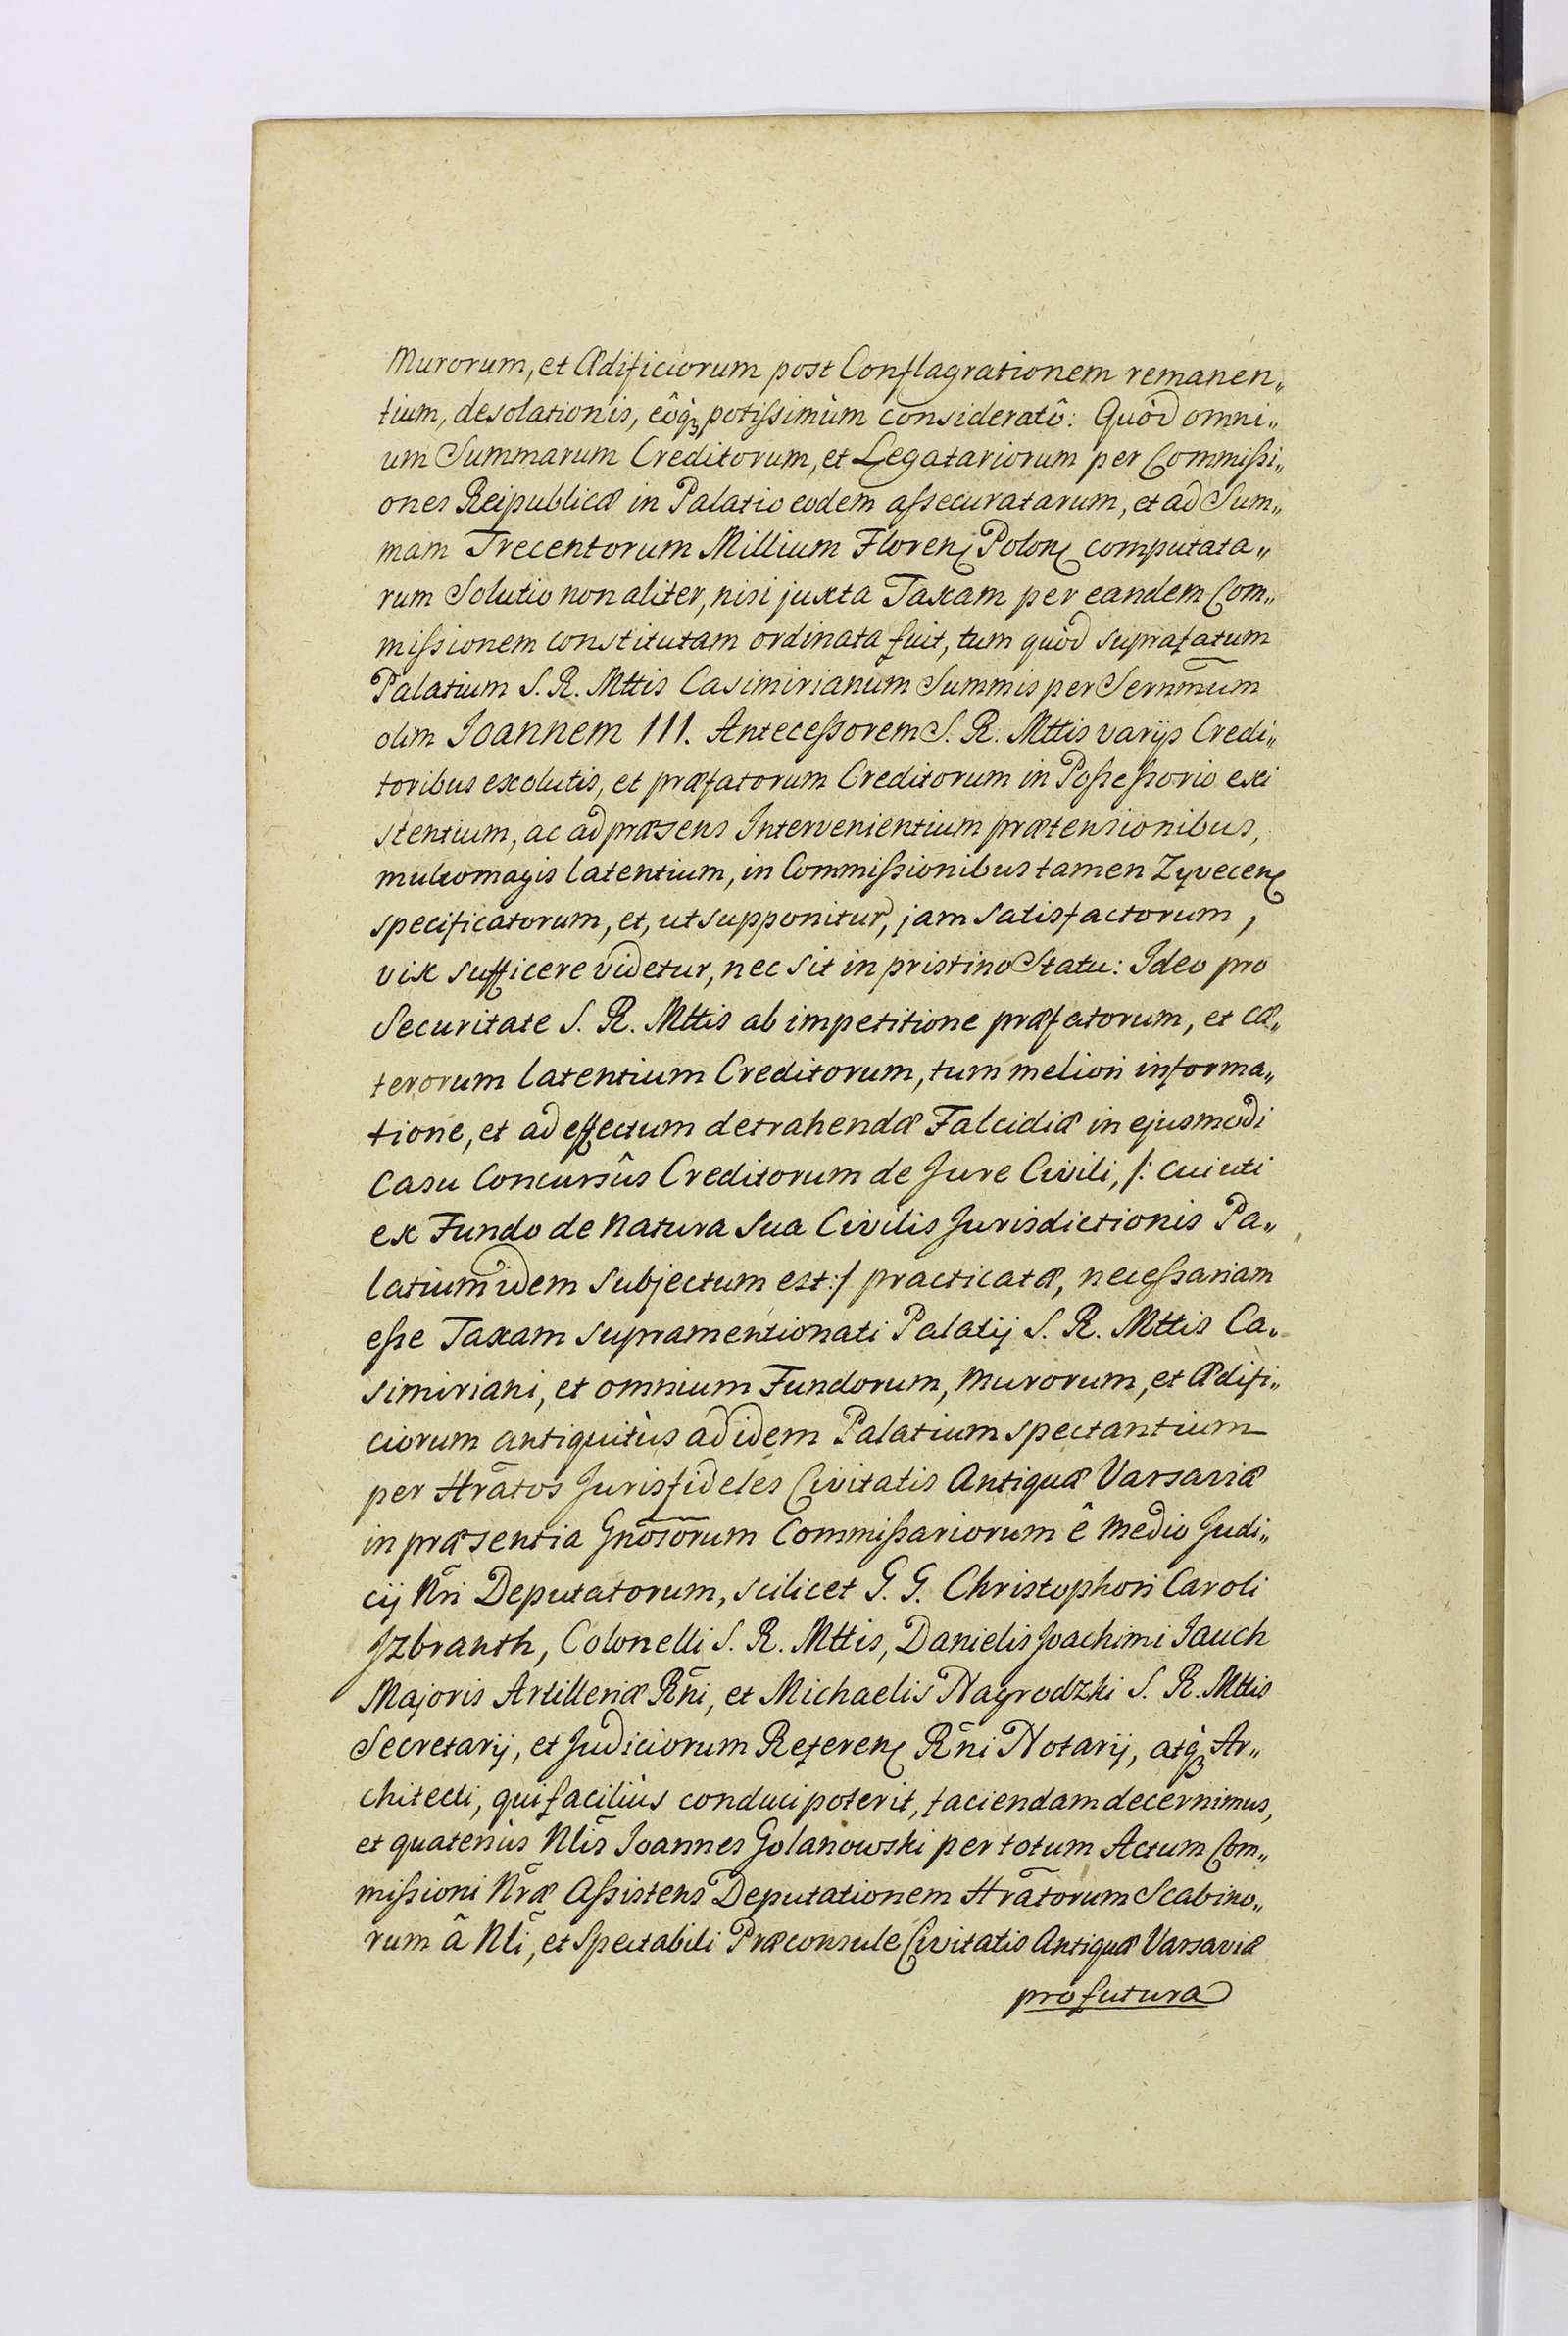 Murorum, et Ædificiorum post Conflagrationem remanen„
tium, desolationis, eôq́ꝫ potißimùm consideratô: Quòd omni„
um Summarum Creditorum, et Legatariorum per Commißi„
ones Reipublicæ in Palatio eodem aßecuratarum, et ad Sum„
mam Trecentorum Millium Floren Polon computata„
rum Solutio non aliter, nisi juxta Taxam per eandem Com„
mißionem constitutam ordinata fuit, tum quòd suprafatum
Palatium S. R. Mttis Casimirianum Summis per Sernm̃um
olim Joannem III. Anteceßorem S. R. Mttis varijs Credi„
toribus exolutis, et præfatorum Creditorum in Poßeßorio exi
stentium, ac ad præsens Intervenientium prætensionibus,
multomagis latentium, in Commißionibus tamen Zyvecen
specificatorum, et, ut supponitur, jam satisfactorum,
vix sufficere videtur, nec sit in pristino Statu: Ideo pro
Securitate S. R. Mttis ab impetitione præfatorum, et cæ„
terorum latentium Creditorum, tum meliori informa„
tione, et ad effectum detrahendæ Falcidiæ in ejusmodi
Casu Concursûs Creditorum de Jure Civili, /: cui uti
ex Fundo de Natura Sua Civilis Jurisdictionis Pa„
latium idem Subjectum est :/ practicatæ, neceßariam
eße Taxam supramentionati Palatij S. R. Mttis Ca„
simiriani, et omnium Fundorum, Murorum, et Ædifi„
ciorum antiquitùs ad idem Palatium spectantium
per Hrãtos Jurisfideles Civitatis Antiquæ Varsaviæ
in præsentia Gnõsõrum Commißariorum ê medio Judi„
cij Nr̃i Deputatorum, scilicet G. G. Christophori Caroli
Jzbranth, Colonelli S. R. Mttis, Danielis Joachimi Jauch
Majoris Artilleriæ Rñi, et Michaelis Nagrodzki S. R. Mttis
Secretarij, et Judiciorum Referen Rñi Notarij, atq́ꝫ Ar„
chitecti, qui faciliùs conduci poterit, faciendam decernimus,
et quatenùs Nlĩs Joannes Golanowski per totum Actum Com„
mißioni Nr̃æ Aßistens Deputationem Hrãtorum Scabino„
rum â Nlĩ, et Spectabili Præconsule Civitatis Antiquæ Varsaviæ
pro futura